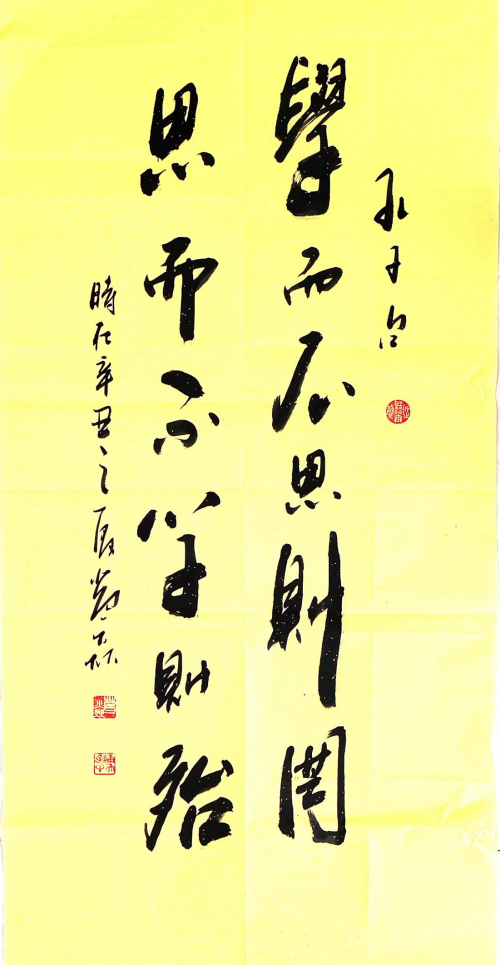 孔子句
學而不思則罔
思而不学則殆
時在辛丑之